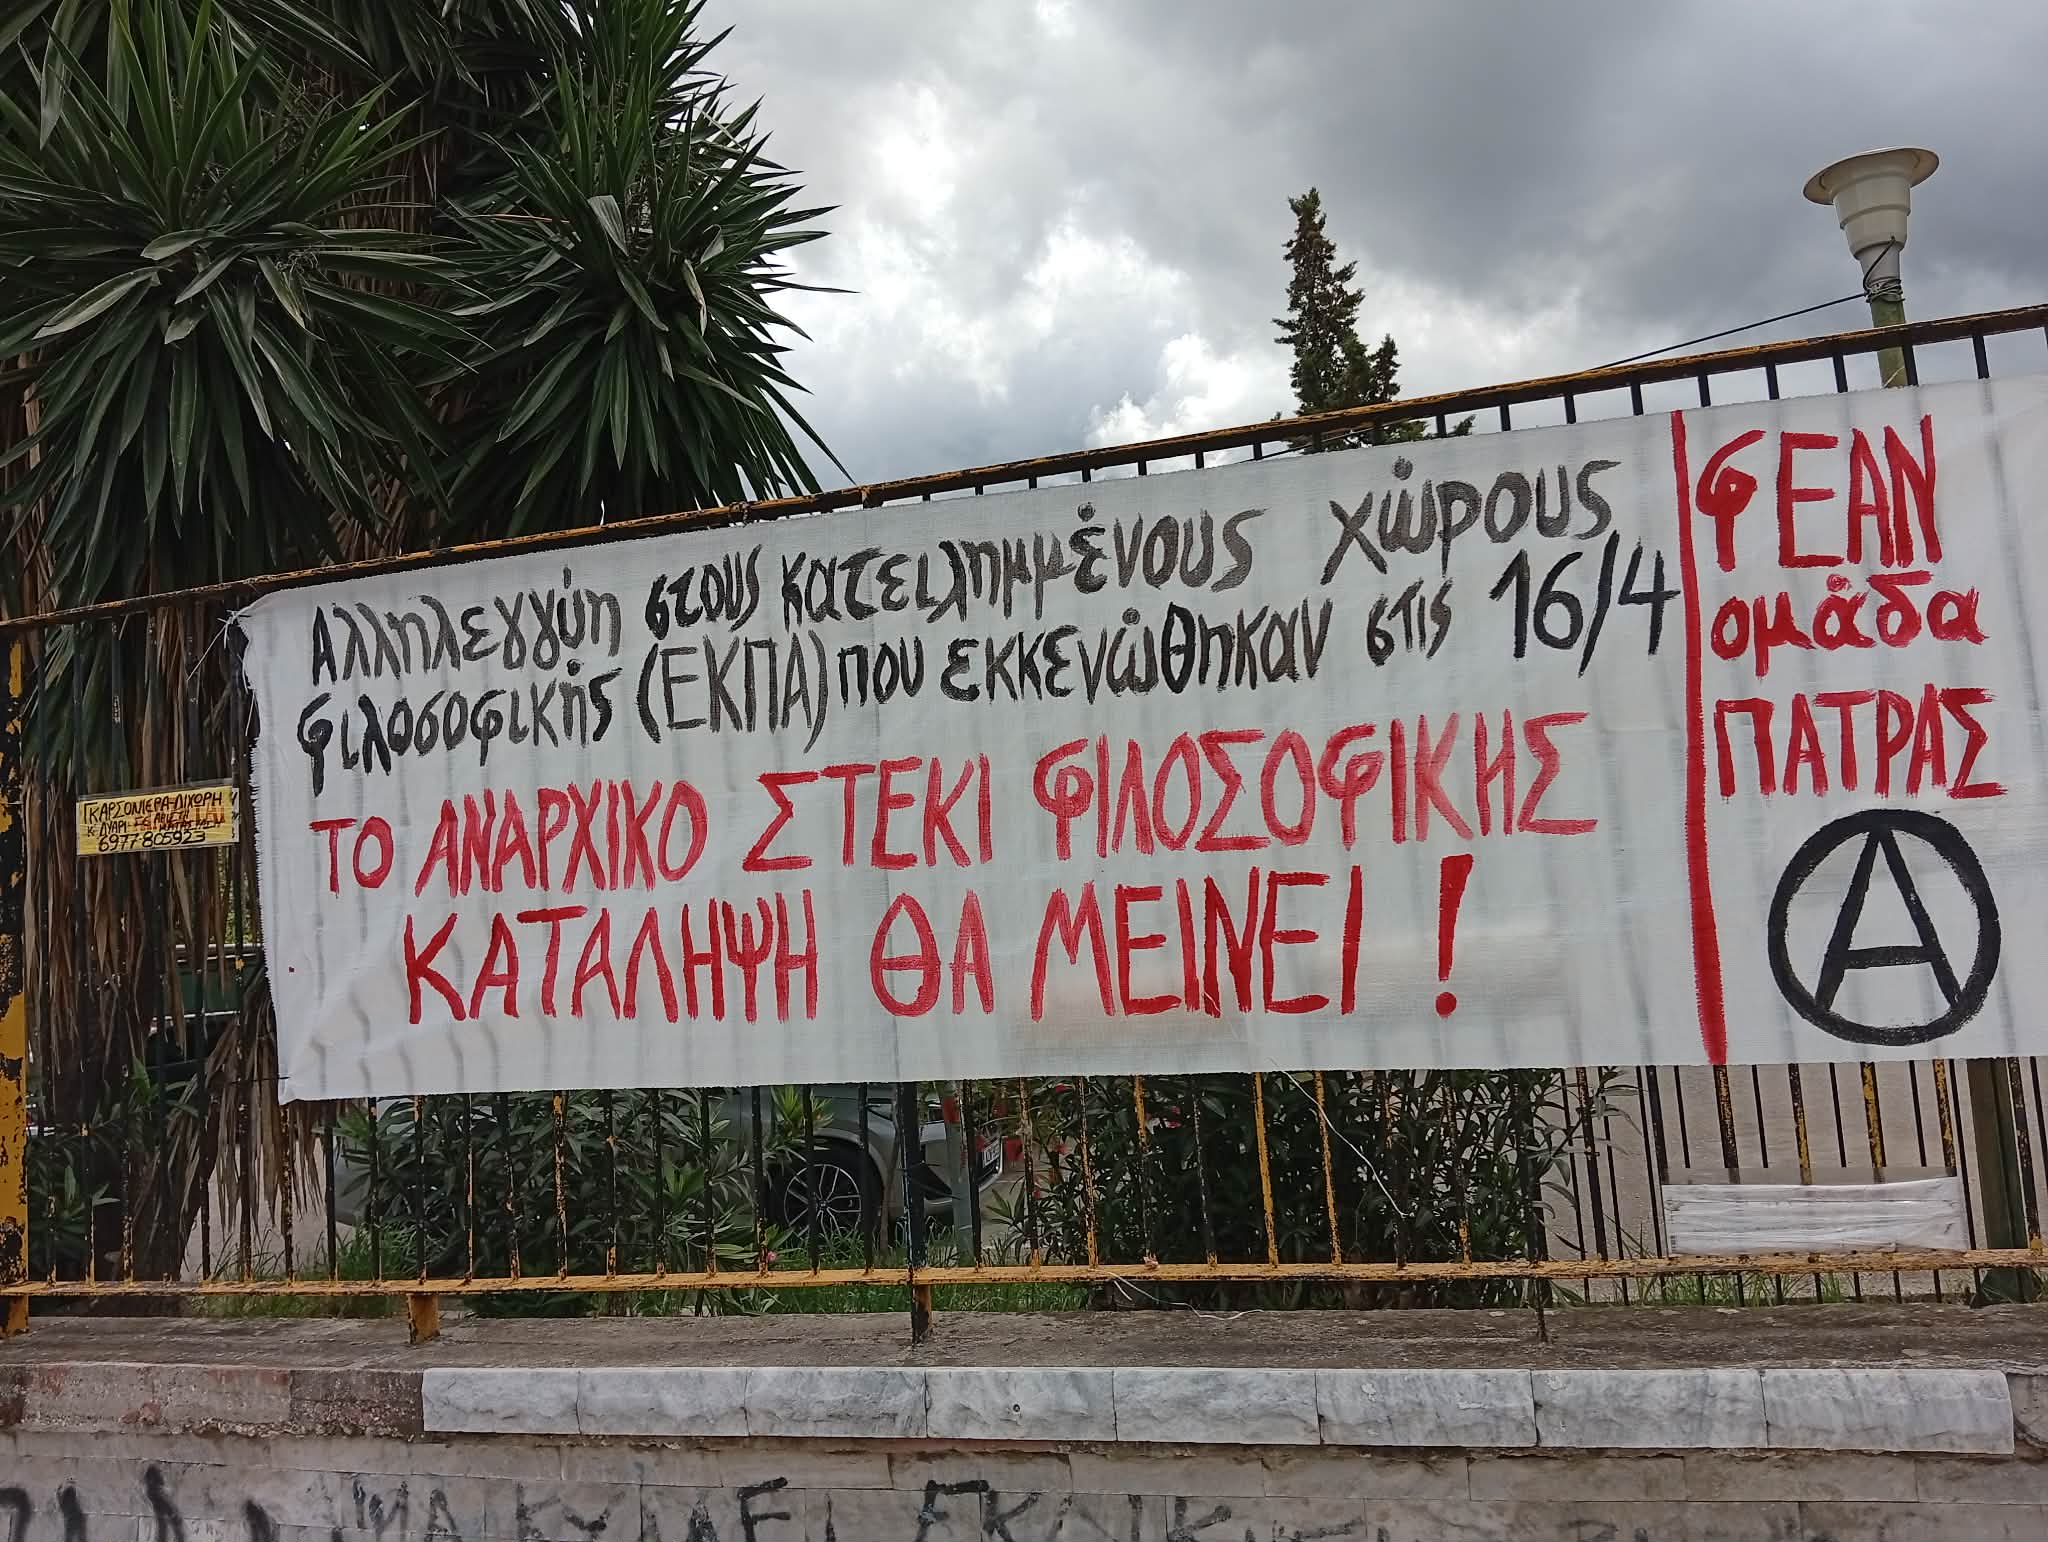 Αλληλεγγύη στους κατειλημμένους χώρους
φιλοσοφικής (ΕΚΠΑ) που εκκενώθηκαν στις 16/4
ΤΟ ΑΝΑΡΧΙΚΟ ΣΤΕΚΙ ΦΙΛΟΣΟΦΙΚΗΣ
ΚΑΤΑΛΗΨΗ ΘΑ ΜΕΙΝΕΙ !
ΦΕΑΝ
ομάδα
ΠΑΤΡΑΣ
A
ΓΚΑΡΣΟΝΙΕΡΑ-ΔΙΧΩΡΗ
6977-805923